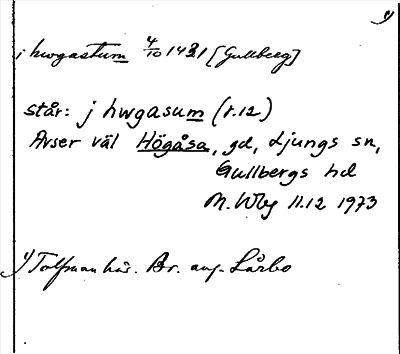 1)
i hwgastum 4/10 1421 [Gullberg]
står: j hwgasum (r.12)
Avser väl Högåsa, gd, Ljungs sn,
Gullbergs hd
M. Wbg 11.12 1973
1) Tolfman här. Br. ang. Lårbo